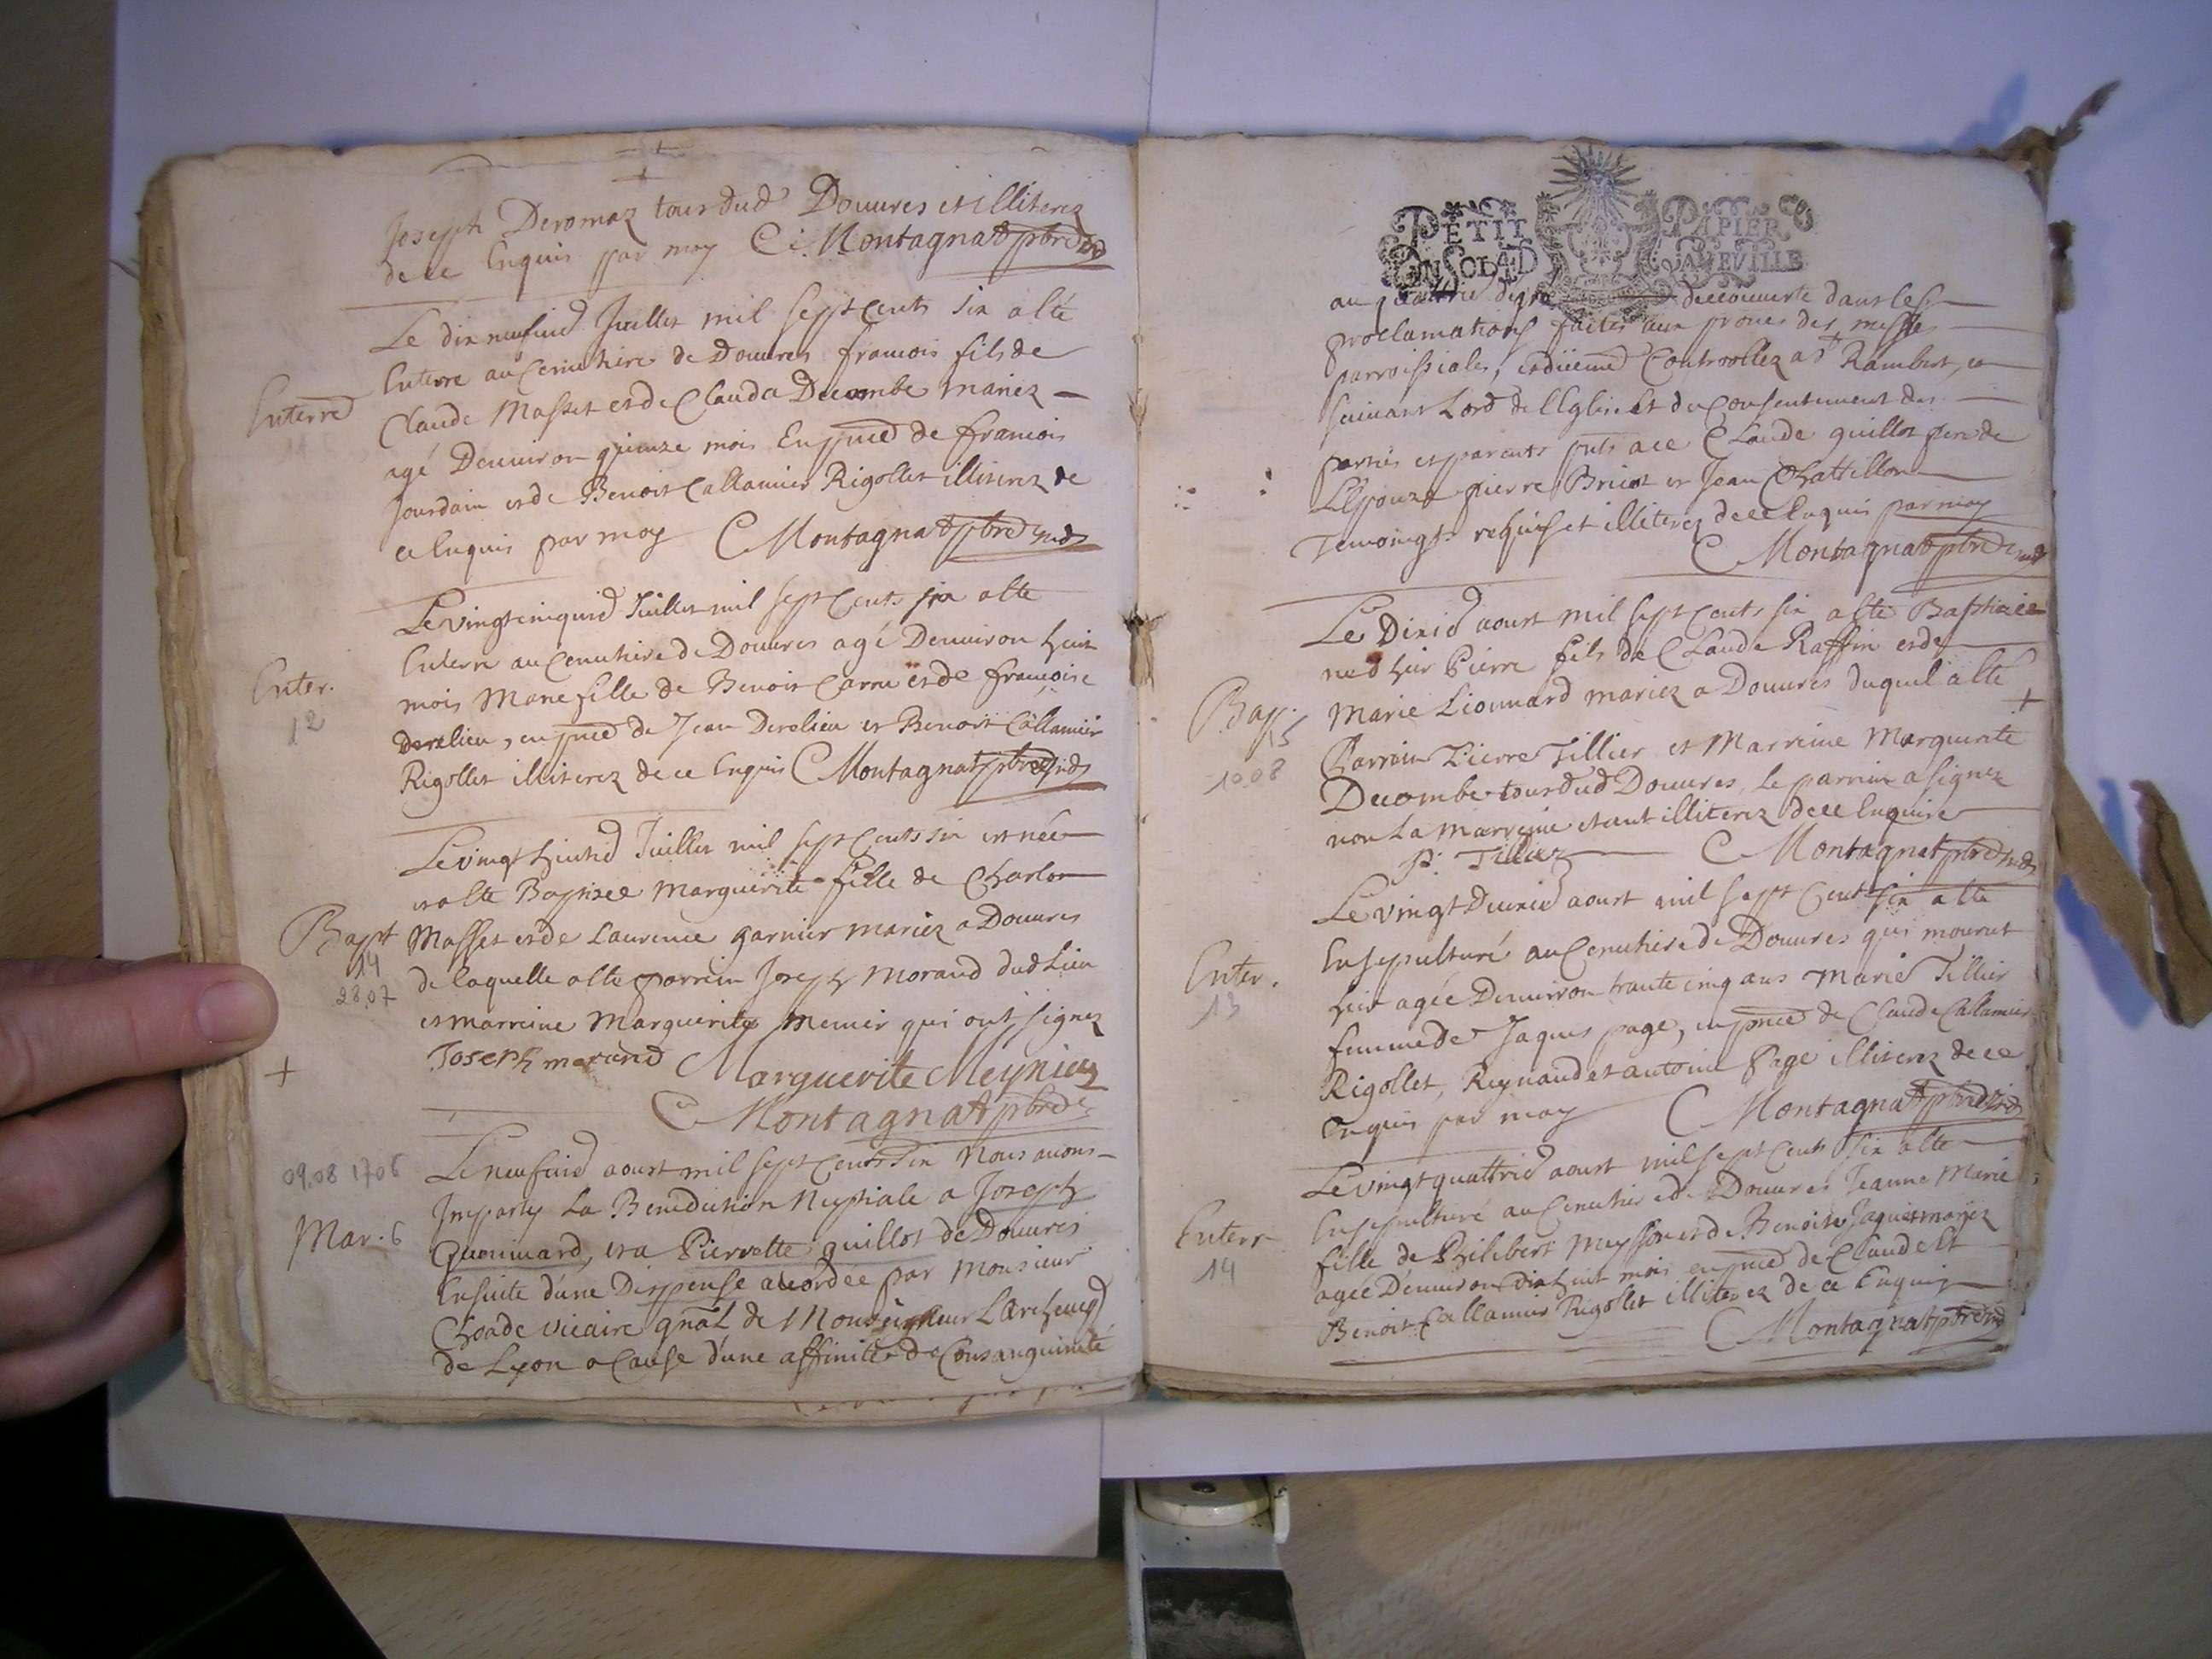 Joseph Deromaz tous dud Douures et illiterez
de ce Enquis par moy C. Montagnat pbre
Le dix neufuie Juillet mil sept Cents six a été
Enterré
Enterre au Cemethire de Douures francois fils de
Claude Masset et de Clauda Decombe mariez
agé Denuiron quinze mois En pnce de francois
Jourdain et de Benoit Callamier Rigollet illiterez de
ce Enquis par moy C Montagnat pbre
Le vingt cinquie Juillet mil sept Cents six a ete
Enter.
12
Enterre au Cemethire de Douures agé Denuiron huit
mois Marie fille de Benoit Carrié et de francoise
Derelieu, en pnce de Jean Derelieu et Benoit Callamier
Rigollet illiterez de ce Enquis C Montagnat pbre
Le vingt huitie Juillet mil sept Cents six est née
et a ete Baptisee Marguerite fille de Charle
Bapt
14
28.07
Masset et de Laurence garnier mariez a Douures
de laquelle a ete parrein Joseph Morand dud Lieu
et marreine Marguerite Menier qui ont signez
Joseph morand Marguerite Meynier
C Montagnat pbre
09.08 1706
Le neufuie aoust mil sept Cents Six Nous auons
Imparty La Benediction Nuptiale a Joseph
Mar. 6
Quarimard, et a Pierrette guillot de Douures
Ensuite d'une Dispense acordée par Monsieur
Choade vicaire gnal de Monseigneur L'Archeuq
de Lyon a Cause d'une affinité de Consanguinité
PETIT PAPIER
au quatrie degré decouuerte dans les
proclamations faites aux prones des messes
parroissiales, Controollez a St Rambert, et
suiuant Lord de l'Eglise et du Consentement des
parties et parents pnts a ce Claude guillot pere de
L'Epouze pierre Briet et Jean Chattillon
Temoingts requis et illiterez de ce Enquis par moy
C Montagnat pbre
Le Dixie aoust mil sept Cents six a ete Baptisée
né d hier Pierre fils de Claude Raffin et de
Bap.
15
10.08
Marie Lionnard mariez a Douures duquel a ete
Parrein Pierre Tillier et Marreine Marguerite
Decombe tous dud Douures, Le parrein a signez
non La Marreine etant illiterez de ce Enquise
P. Tillier C Montagnat pbre
Le vingt Deuxie aoust mil sept Cent six a ete
Ensepulturé au Cemethire de Douures qui mourut
Enter.
13
hier agée Denuiron trante cinq ans Marie Tillier
femme de Jaques page, en pnce de Claude Callamier
Rigollet, Reynaud et antoine Page illiterez de ce
Enquis par moy C Montagnat pbre
Le vingt quattrie aoust mil sept Cents six a ete
Ensepulturé au Cemethire de Douures Jeanne Marie
Enterr
14
fille de Philibert Meysson et de Benoite Jaquet mariez
agée Denuiron dix huit mois en pnce de Claude Et
Benoit Callamier Rigollet illiterez de ce Enquis
C Montagnat pbre